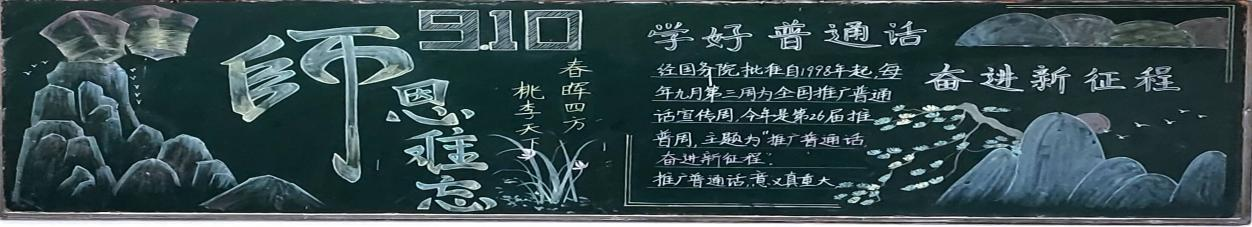 師恩难忘
9.10
春晖四方
桃李天下
学好普通话
经国务院批准自1998年起,每
年九月第三周为全国推广普通
话宣传周,今年是第26届推
普周,主题为“推广普通话,
奋进新征程”.
推广普通话,意义真重大
奋进新征程